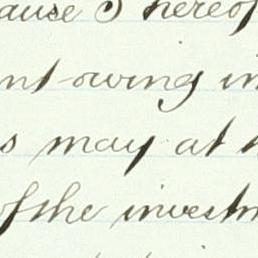 ause I hereof
nt owing in
s may at t
of the investm